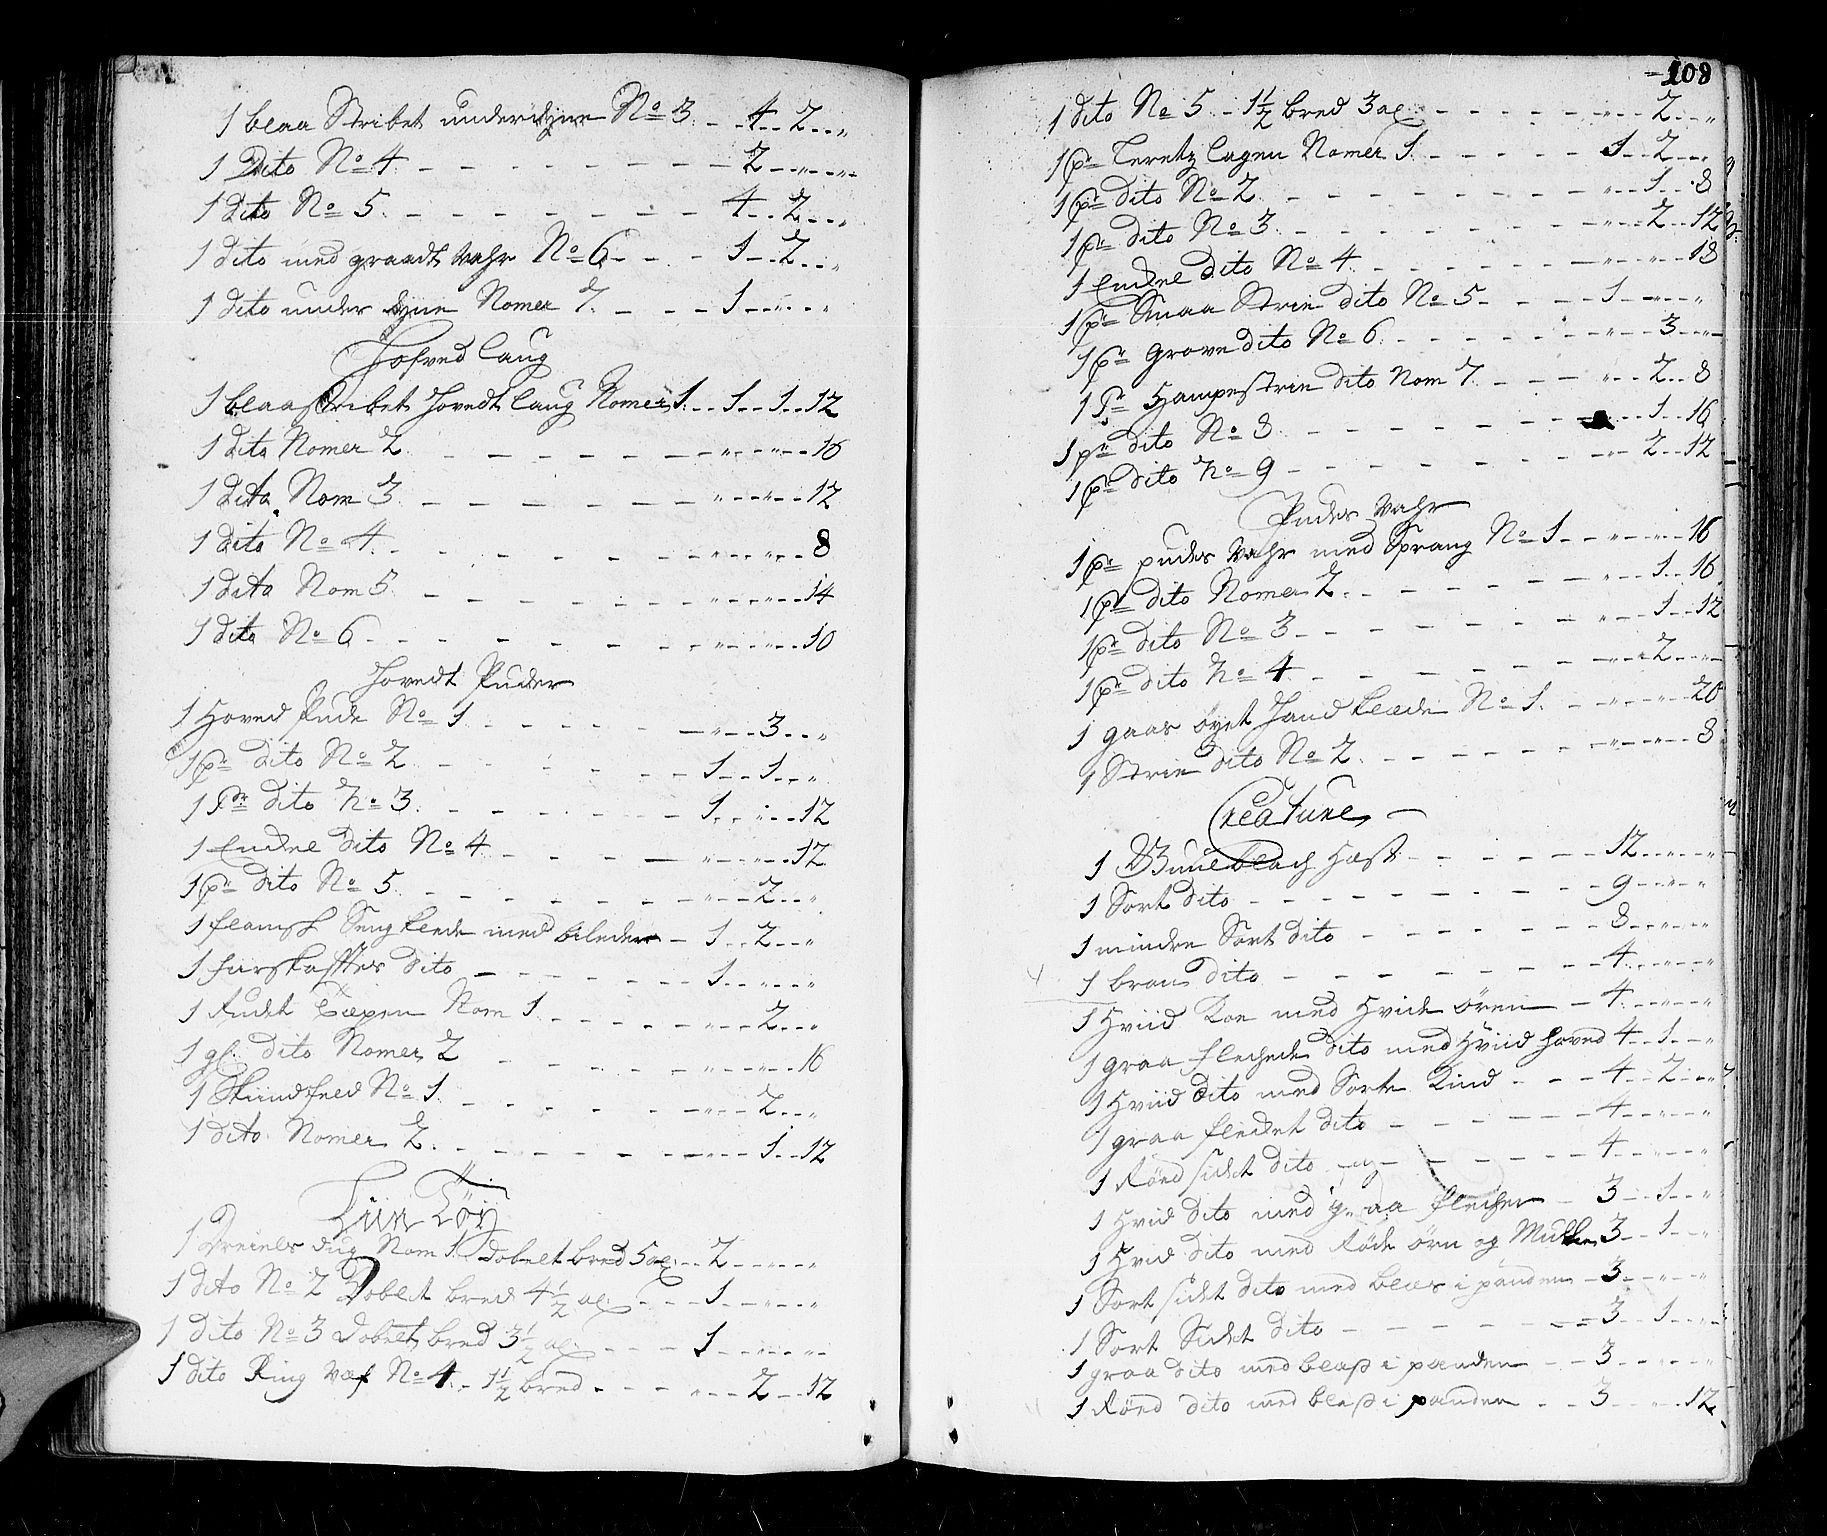 1 blaa Stribet underdyne No 3 - - 4 - - 2 - - "
1 Dito No 4 - - - - - - - 2 - - " - - "
1 dito No 5 - - - - - - - 4 - - 2 - - "
1 dito med graadt Vahr No 6 - - - 1 - - 2 - - "
1 dito under dyne Nomer 7 - - - 1 - - " - - "
Hofved laug
1 blaastribet Hovedt laug Nomer 1 - - 1 - - 1 - - 12
1 dito Nomer 2 - - - - - - " - - " - - 16
1 dito Nom 3 - - - - - - " - - " - - 12
1 dito No 4 - - - - - - " - - " - - 8
1 dito Nom 5 - - - - - - " - - " - - 14
1 dito No 6 - - - - - - " - - " - - 10
Hovedt Puder
1 Hoved Pude No 1 - - - - - " - - 3 - - "
1 pr dito No 2 - - - - - 1 - - 1 - - "
1 Pr dito No 3 - - - - - 1 - - " - - 12
1 Enckel dito No 4 - - - - " - - " - - 12
1 pr dito No 5 - - - - - " - - 2 - - "
1 flamsk Sengklede med bileder - 1 - - 2 - - "
1 dito - - - - 1 - - " - - "
1 Rudt Tæpen Nom 1 - - - - " - - 2 - - "
1 gl: dito Nomer 2 - - - - " - - " - - 16
1 Skiindfeld No 1 - - - - - " - - 2 - - "
1 dito Nomer 2 - - - - - " - - 1 - - 12
Liin Tøy
1 Dreiels dug Nom 1 dobelt bred 5 al: - - 2 - - " - - "
1 dito No 2 Dobelt bred 4 1/2 al: - - - 1 - - " - - "
1 dito No 3 dobelt bred 3 1/2 al: - - - 1 - - " - - "
1 dito Ring Væf No 4 - 1 1/2 bred - - - " - - 2 - - 12
109
1 dito No 5 - 1 1/2 bred 3 al: - - - - " - - 2 - - "
1 pr Leretz lagen Nomer 1 - - - - 1 - - 2 - - "
1 pr dito No 2 - - - - - " - - 1 - - 8
1 pr dito No 3 - - - - - " - - 2 - - 12
1 Enckel dito No 4 - - - - " - - " - - 18
1 pr Smaa Strie dito No 5 - - - 1 - - " - - "
1 pr Grove dito No 6 - - - - " - - 3 - - "
1 Pr Hampestrie dito Nom 7 - - - " - - 2 - - 8
1 pr dito No 8 - - - - - - - 1 - - 16
1 pr dito No 9 - - - - - " - - 2 - - 12
Pudes Vahr
1 pr pudes Vahr med Sprang No 1 - - " - - " - - 16
1 pr dito Nomer 2 - - - - " - - 1 - - 16
1 pr dito No 3 - - - - - " - - 1 - - 12
1 pr dito No 4 - - - - - " - - 2 - - "
1 gaas øyet Hand klæde No 1 - - " - - " - - 20
1 Strie dito No 2 - - - - - " - - " - - 8
Creature
1 blach Hæst - - - - 12 - - " - - "
1 Sort dito - - - - - - 9 - - " - - "
1 mindre Sort dito - - - - - 8 - - " - - "
1 brun dito - - - - - - 4 - - " - - "
1 Hviid Koe med Hvide øren - 4 - - " - - "
1 graa flechede dito med Hviid hoved 4 - - 1 - - "
1 Hviid dito med Sorte Kind - - - 4 - - 2 - - "
1 graa flecket dito - - - - 4 - - " - - "
1 Rød sidet dito - - - - 4 - - " - - "
1 Hvid dito med graa flecher - 3 - - 1 - - "
1 Hvid dito med Røde ørn og Mulle 3 - - 1 - - "
1 Sort sidet dito med bles i panden - 3 - - " - - "
1 Sort Sidet dito - - - - - 3 - - 1 - - "
1 graa dito med blæs i panden - - 3 - - " - - "
1 Rød dito med blæs i panden - - 3 - - " - - 12